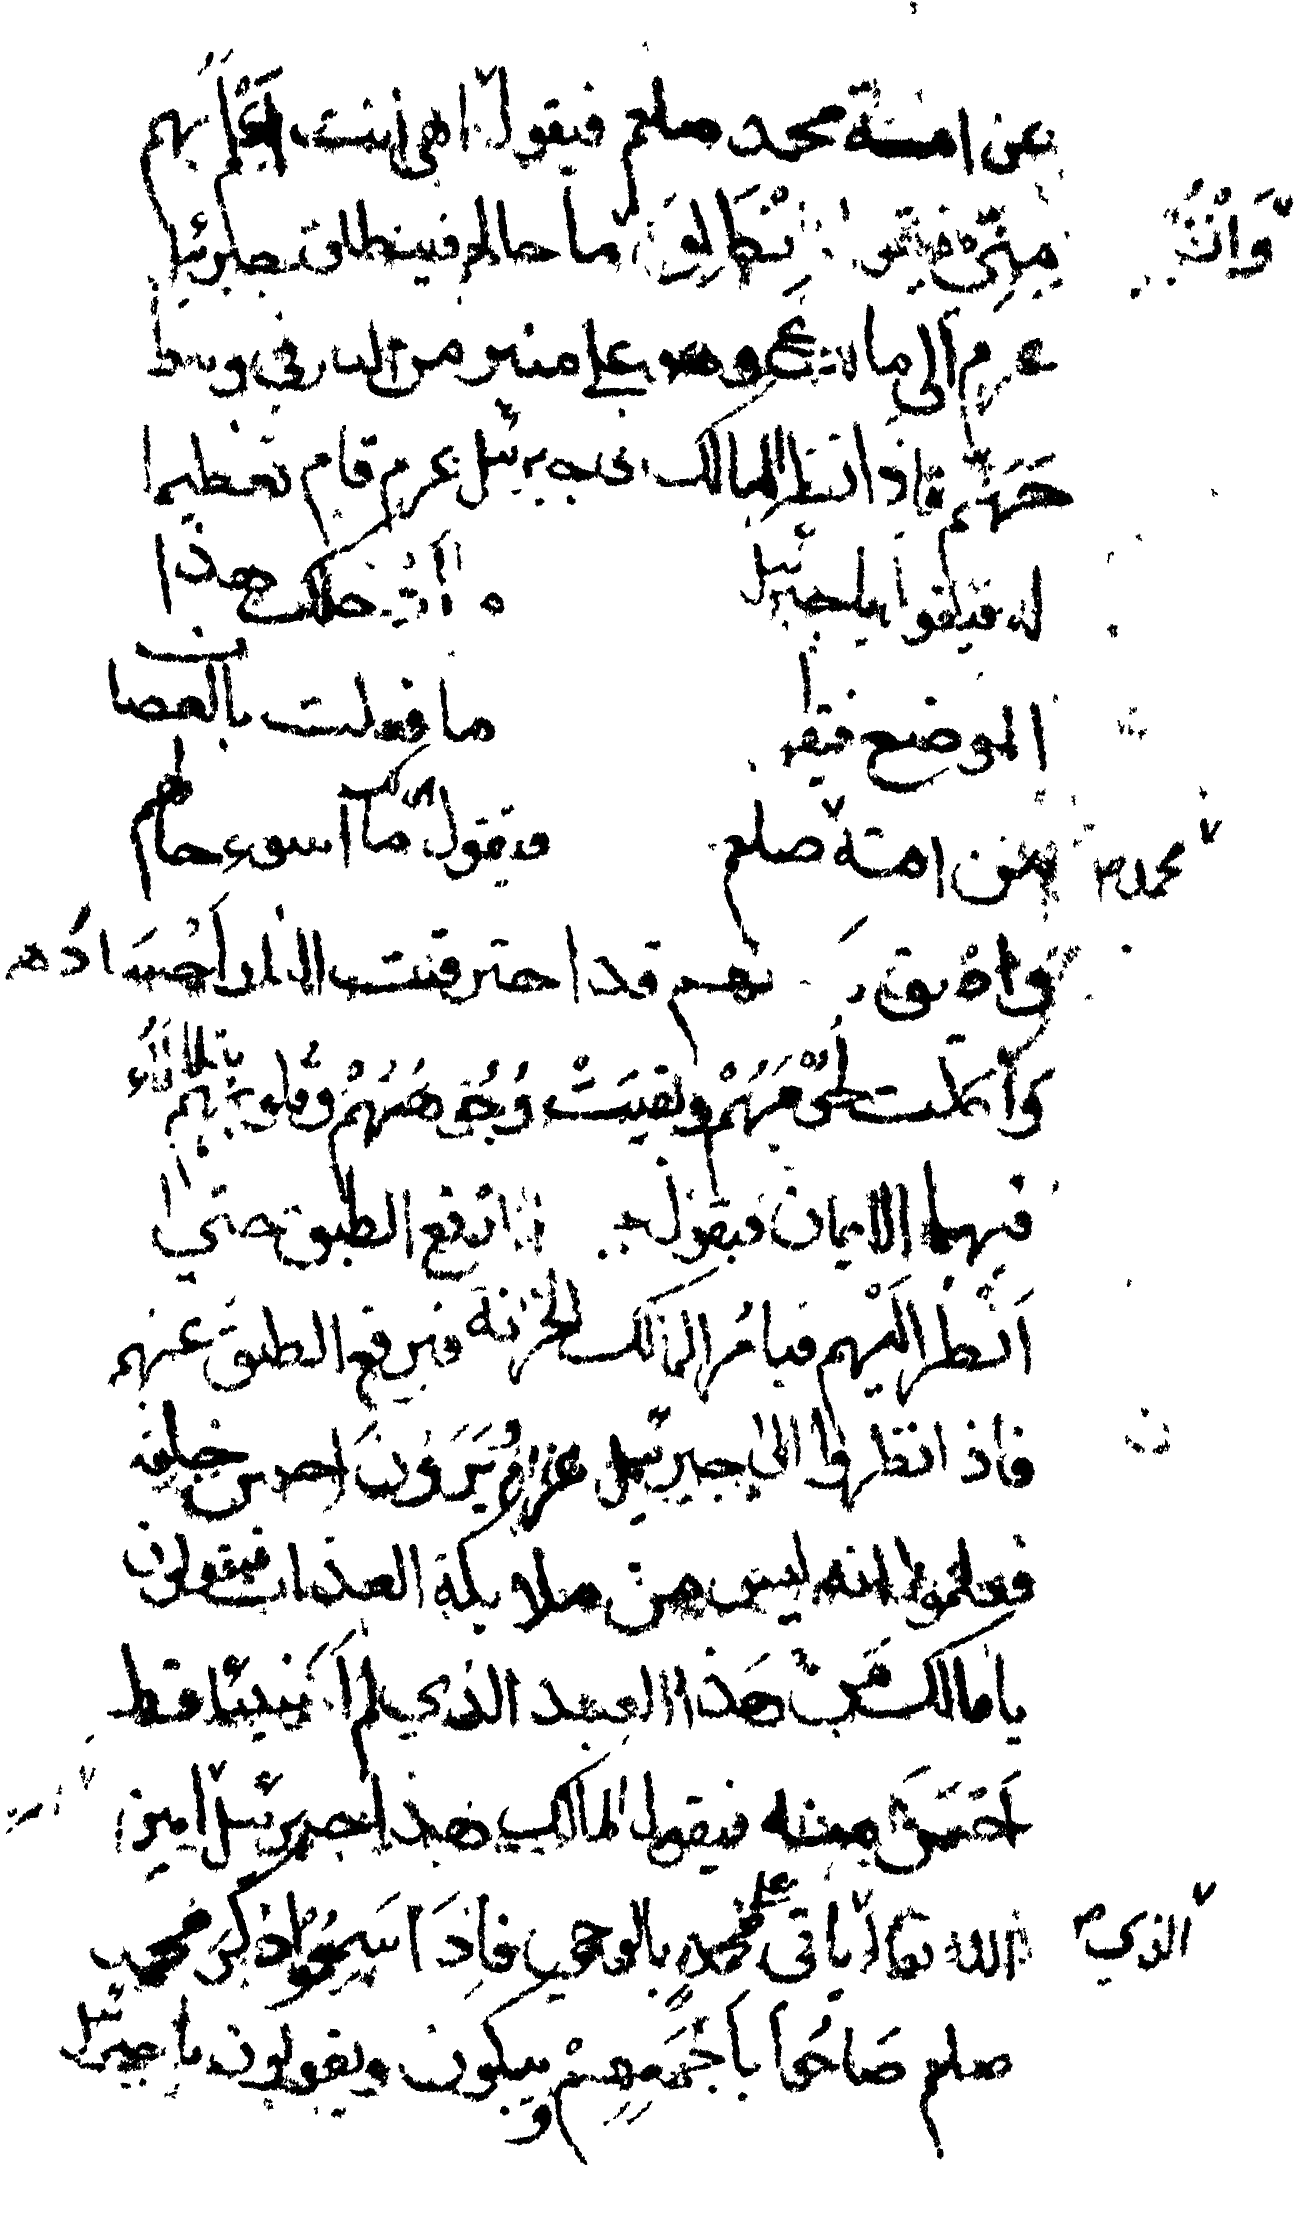 عن امة محمد صلعم فيقول الهي انت اعلم بهم
مني فيقول انطلق وانظر ما حالهم فينطلق جبرئيل
عزم الى مالك وهو على منبر من النار في وسط
جهنم فاذا نظر المالك الى جبرئيل عزم قام تعظيما
له فيقول يا جبرئيل ما ادخلك هذا
الموضع فيقول ما فعلت بالعصاة
من امة محمد صلعم فيقول مالك ما اسوء حالهم
واضيق نعم قد احترقت النار اجسادهم
واكلت لحومهم وبقيت وجوههم وقلوبهم يتلألأ
فيهما الايمان فيقول ارفع الطبق حتى
انظر اليهم فيامر المالك الخزنة فيرفع الطبق عنهم
فاذا نظروا الى جبرئيل عزم يرون احسن خلقه
فعلموا انه ليس من ملايكة العذاب فيقولون
يا مالك من هذا العبد الذي لم شيئا قط
احسن منه فيقول المالك هذا جبرئيل امين
الله تعالى الذي ياتي على محمد بالوحي فاذا سمعوا ذكر محمد
صلعم صاحوا باجمعهم ويبكون ويقولون يا جبرئيل